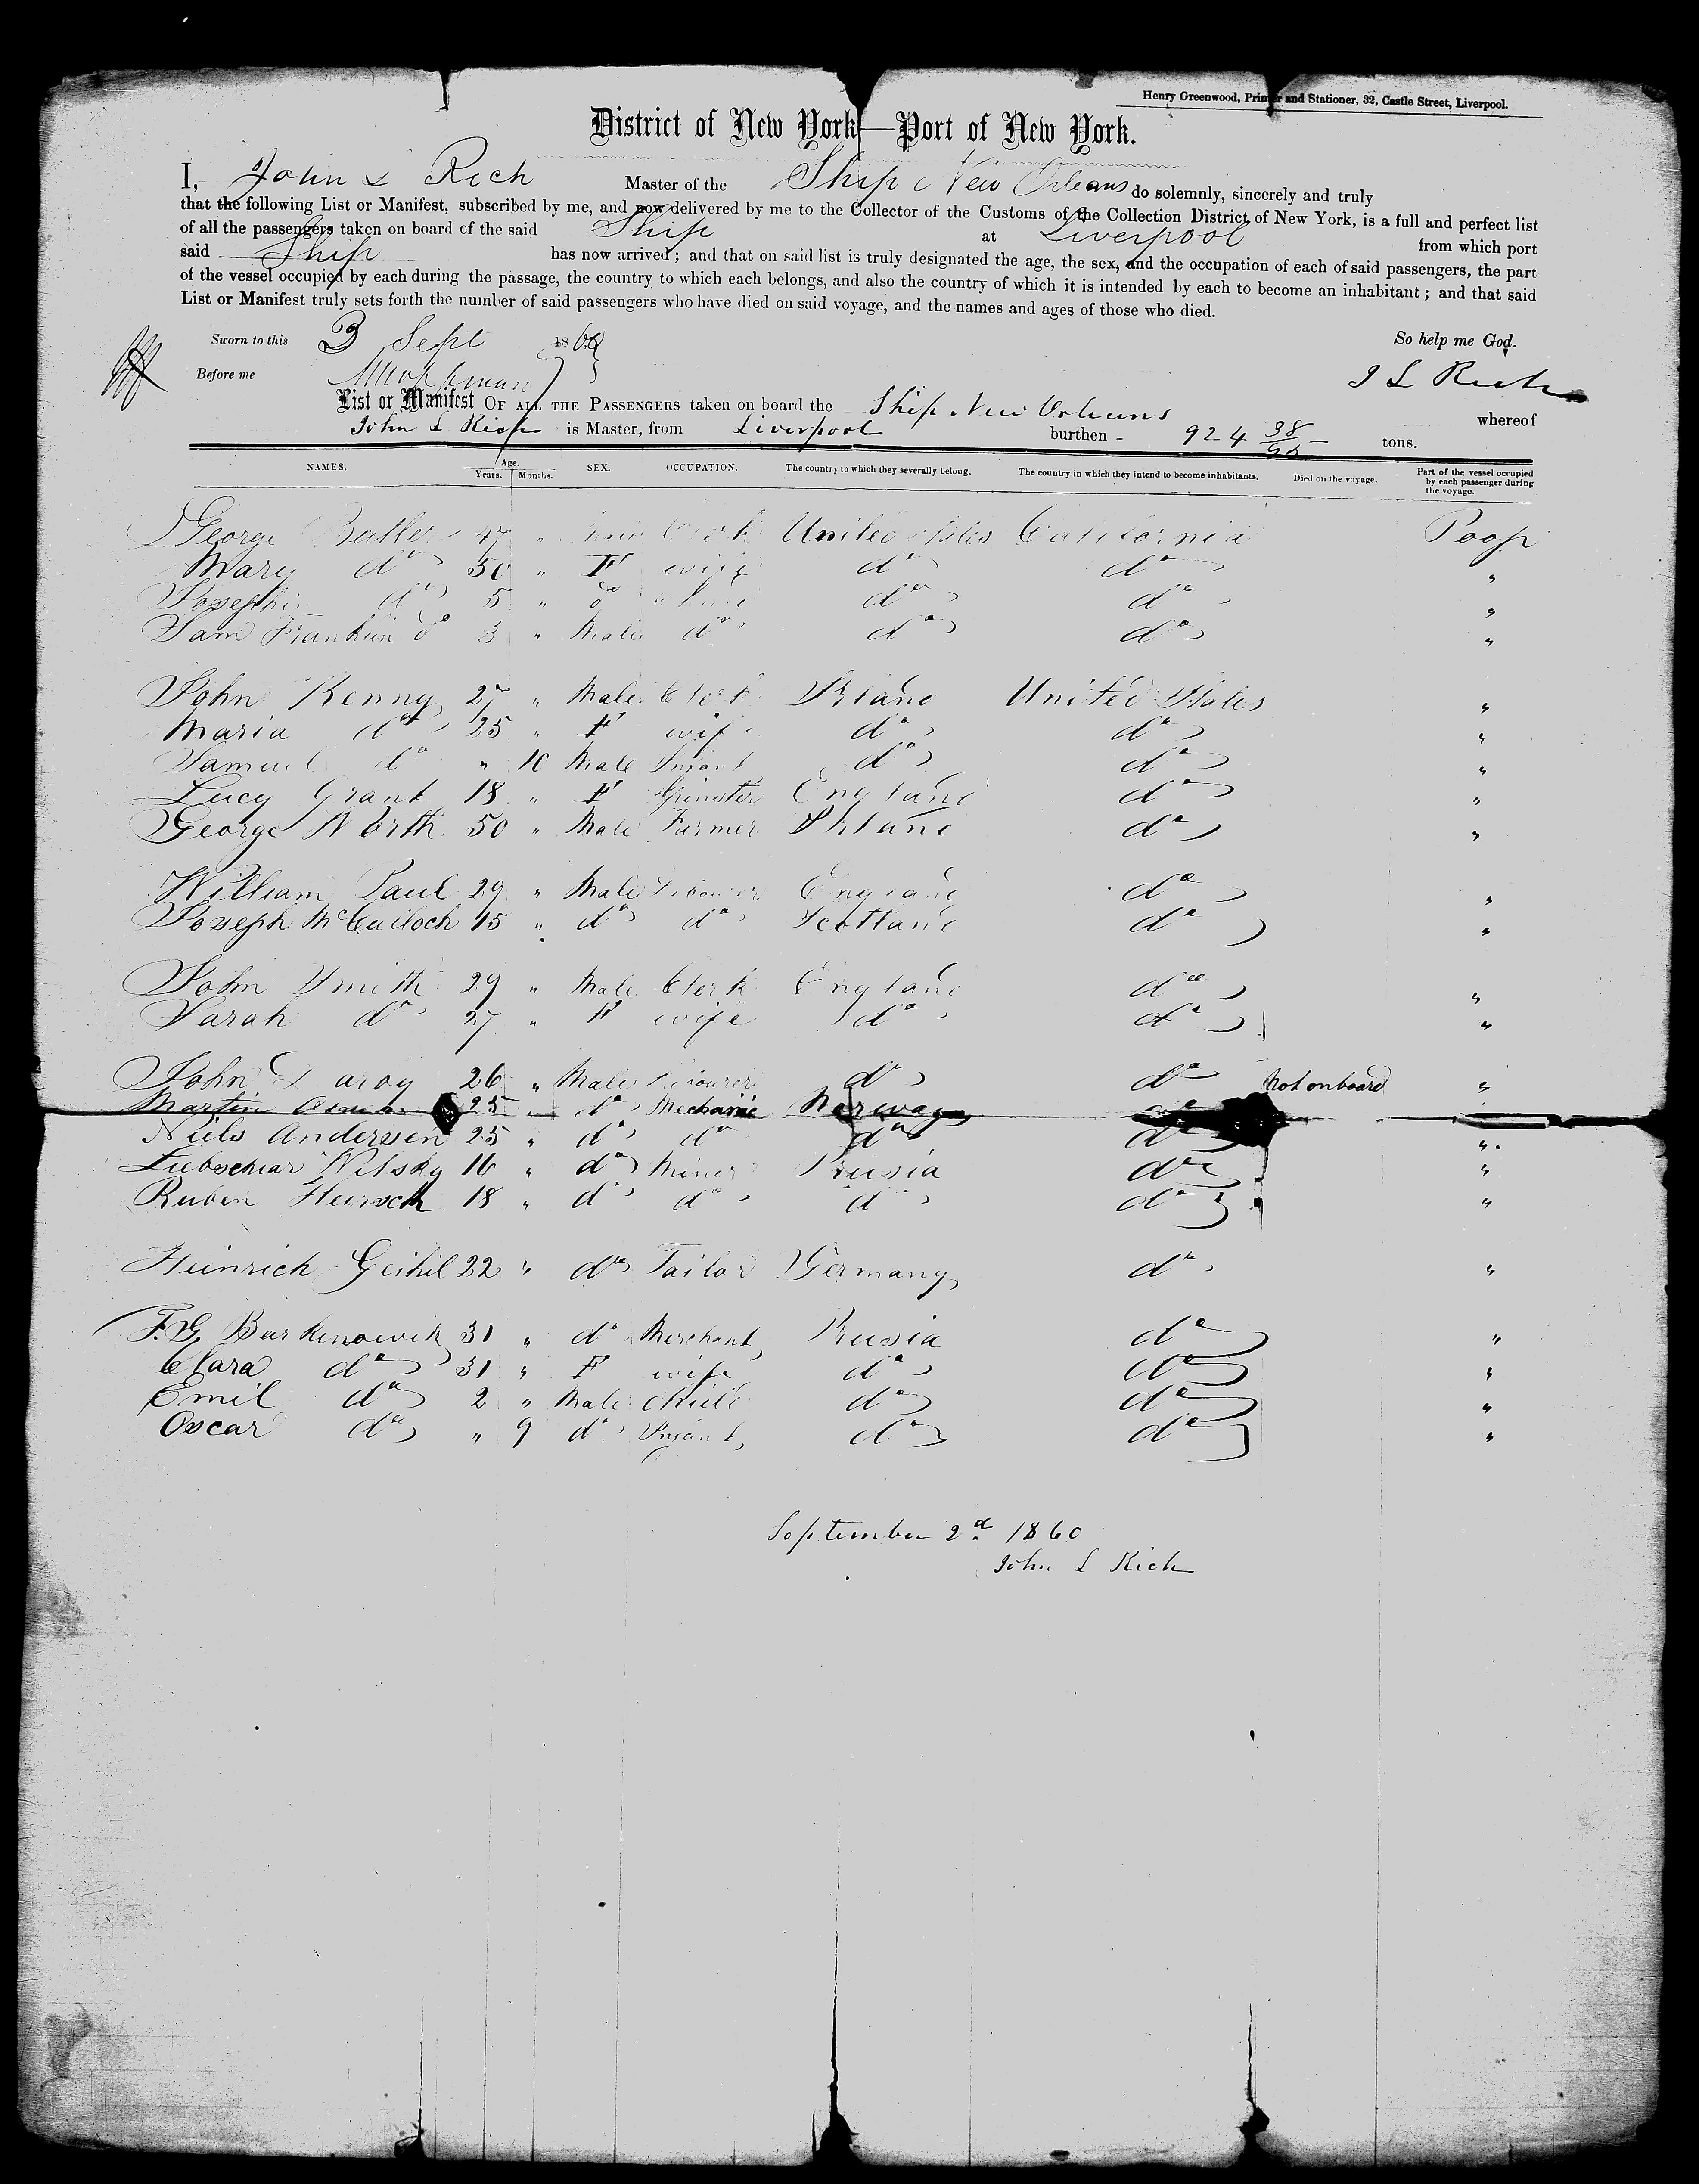 Henry Greenwood, Printer and Stationer, 32, Castle Street, Liverpool.
District of New York—Port of New York.
I, John L Rich Master of the Ship New Orleans do solemnly, sincerely and truly
that the following List or Manifest, subscribed by me, and now delivered by me to the Collector of the Customs of the Collection District of New York, is a full and perfect list
of all the passengers taken on board of the said Ship at Liverpool from which port
said Ship has now arrived; and that on said list is truly designated the age, the sex, and the occupation of each of said passengers, the part
of the vessel occupied by each during the passage, the country to which each belongs, and also the country of which it is intended by each to become an inhabitant; and that said
List or Manifest truly sets forth the number of said passengers who have died on said voyage, and the names and ages of those who died.
Sworn to this 3 Sept 1860 So help me God.
Before me J L Rich
List or Manifest OF ALL THE PASSENGERS taken on board the Ship New Orleans whereof
John L Rich is Master, from Liverpool burthen - 924 38/95 - tons.
NAMES. Age. Years. Months. SEX. OCCUPATION. The country to which they severally belong. The country in which they intend to become inhabitants. Died on the voyage. Part of the vessel occupied by each passenger during the voyage.
George Butler 47 " Clerk United States California Poop
Mary do 30 " F wife do do "
do 5 " do do do "
Sam Franklin do 3 " Male do do do "
John Kenny 27 " Male Clerk Irland United States "
Maria do 25 " F wife do do "
Samuel do " 10 Male Infant do do "
Lucy Grant 18 " F England do "
George North 50 " Male Farmer Irland do "
William Paul 29 " Male Labourer England do "
Joseph McCulloch 15 " do do Scotland do "
John Smith 29 " Male Clerk England do "
Sarah do 27 " F wife do do "
John 26 " Male Labourer do do Not on board "
Martin 25 " do Mechanic Norway do
Niels Andersen 25 " do do do do "
Nilsky 16 " do Miner Prusia do "
Ruben Heirsch 18 " do do do do "
Heinrich Geihil 22 " do Tailor Germany do "
F. G. Barkenowik 31 " do Merchant Prusia do "
Clara do 31 " F wife do do "
Emil do 2 " Male Child do do "
Oscar do " 9 do Infant do do "
September 2d 1860
John L Rich